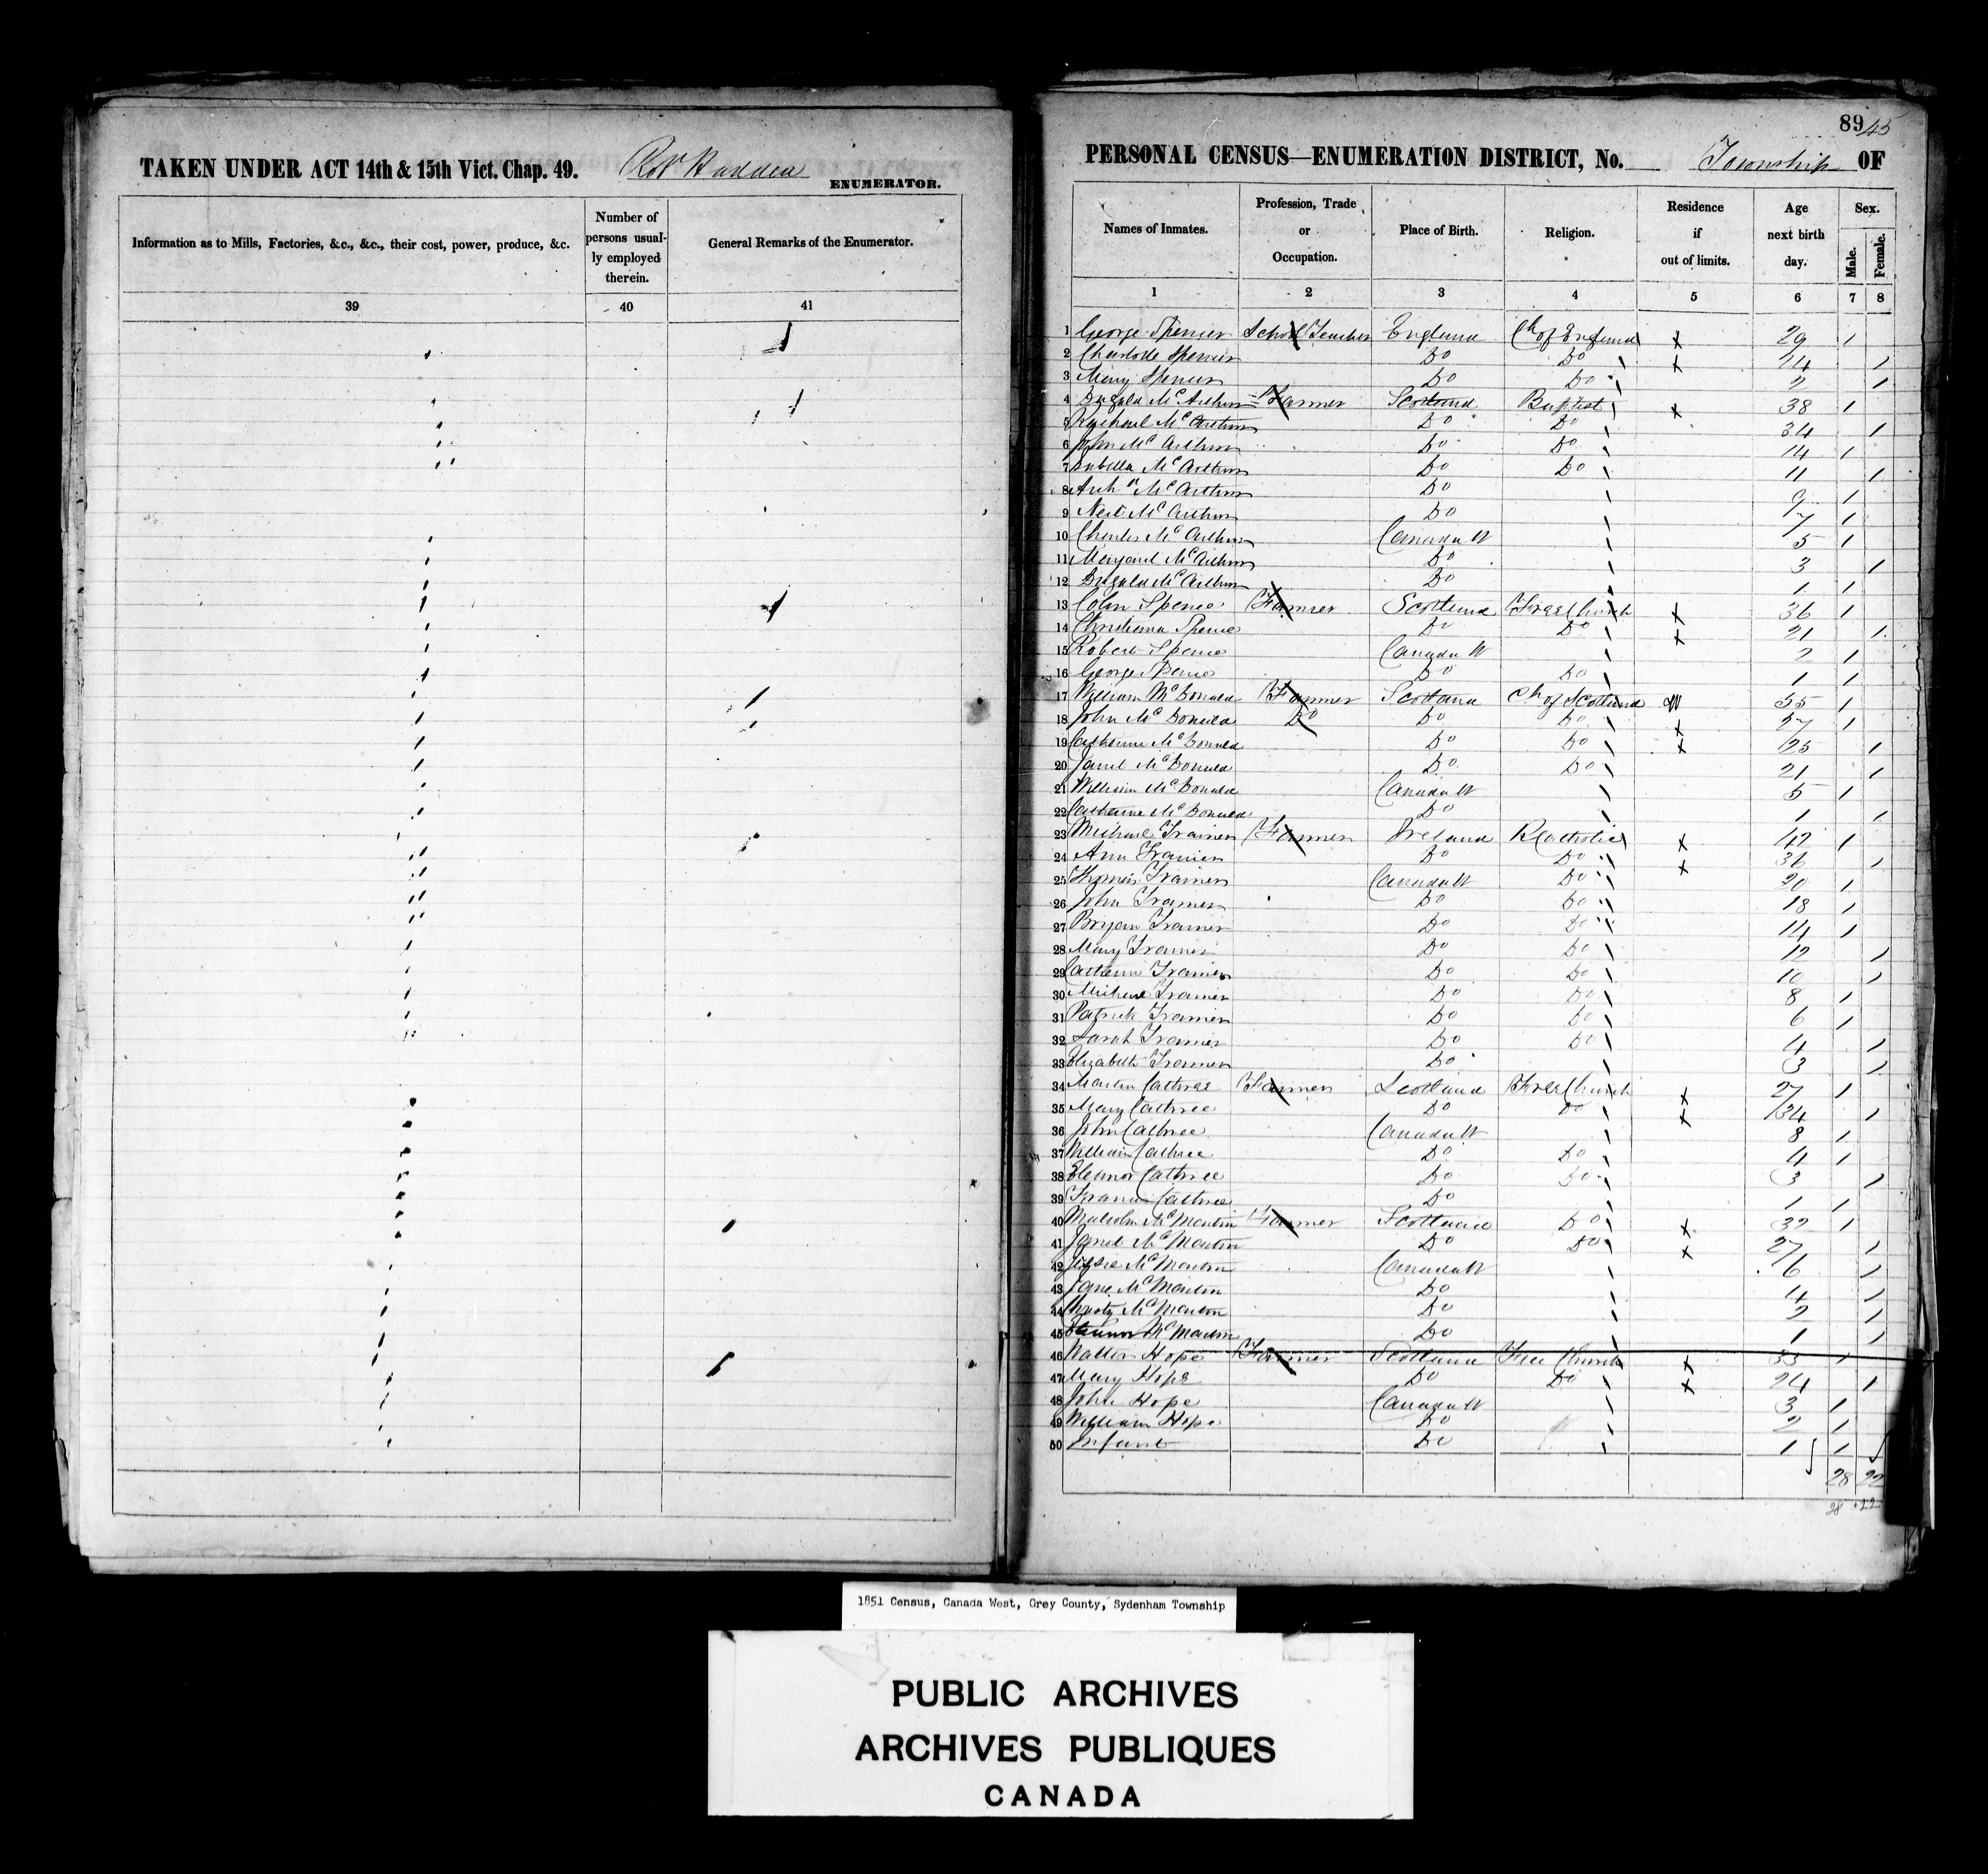 TAKEN UNDER ACT 14th & 15th Vict. Chap. 49. Robt ENUMERATOR.
Information as to Mills, Factories, &c., &c., their cost, power, produce, &c.
Number of persons usual-
ly employed therein.
General Remarks of the Enumerator.
39 40 41
89 45
PERSONAL CENSUS—ENUMERATION DISTRICT, No. Township OF
Names of Inmates. Profession, Trade or Occupation. Place of Birth. Religion. Residence if out of limits. Age next birth day. Sex. Male. Female.
1 2 3 4 5 6 7 8
1 George Spencer School Teacher England Ch of England x 29 1
2 Charlotte Spencer Do Do x 24 1
3 Mary Spencer Do Do 2 1
4 Dugald Mc Arthur Farmer Scotland Baptist x 38 1
5 Rachael Mc Arthur Do Do 34 1
6 John Mc Arthur Do Do 14 1
7 Isabella Mc Arthur Do Do 11 1
8 Archd Mc Arthur Do 9 1
9 Neil Mc Arthur Do 7 1
10 Charles Mc Arthur Canada W 5 1
11 Margaret Mc Arthur Do 3 1
12 Dugald Mc Arthur Do 1 1
13 Colin Spence Farmer Scotland Free Church x 36 1
14 Christiana Spence Do Do x 21 1
15 Robert Spence Canada W 2 1
16 George Spence Do Do 1 1
17 William Mc Donald Farmer Scotland Ch of Scotland W 55 1
18 John Mc Donald Do Do Do x 27 1
19 Catherine Mc Donald Do Do x 25 1
20 Janet Mc Donald Do Do 21 1
21 William Mc Donald Canada W 5 1
22 Catherine Mc Donald Do 1 1
23 Michael Trainer Farmer Ireland R Catholic x 42 1
24 Ann Trainer Do Do x 36 1
25 Thomas Trainer Canada W Do 20 1
26 John Trainer Do Do 18 1
27 Bryan Trainer Do Do 14 1
28 Mary Trainer Do Do 12 1
29 Catherine Trainer Do Do 10 1
30 Michael Trainer Do Do 8 1
31 Patrick Trainer Do Do 6 1
32 Sarah Trainer Do Do 4 1
33 Elizabeth Trainer Do 3 1
34 Martin Farmer Scotland Free Church x 27 1
35 Mary Do Do x 34 1
36 John Canada W 8 1
37 William Do Do 4 1
38 Eleanor Do Do 3 1
39 Francis Do 1 1
40 Malcolm Mc Martin Farmer Scotland Do x 32 1
41 Janet Mc Martin Do Do x 27 1
42 Mc Martin Canada W 6 1
43 Jane Mc Martin Do 4 1
44 Christy Mc Martin Do 2 1
45 Mc Martin Do 1 1
46 Walter Hope Farmer Scotland Free Church x 33 1
47 Mary Hope Do Do x 24 1
48 John Hope Canada W 3 1
49 William Hope Do 2 1
50 Infant Do 1 1
28 22
28 22
1851 Census, Canada West, Grey County, Sydenham Township
PUBLIC ARCHIVES
ARCHIVES PUBLIQUES
CANADA